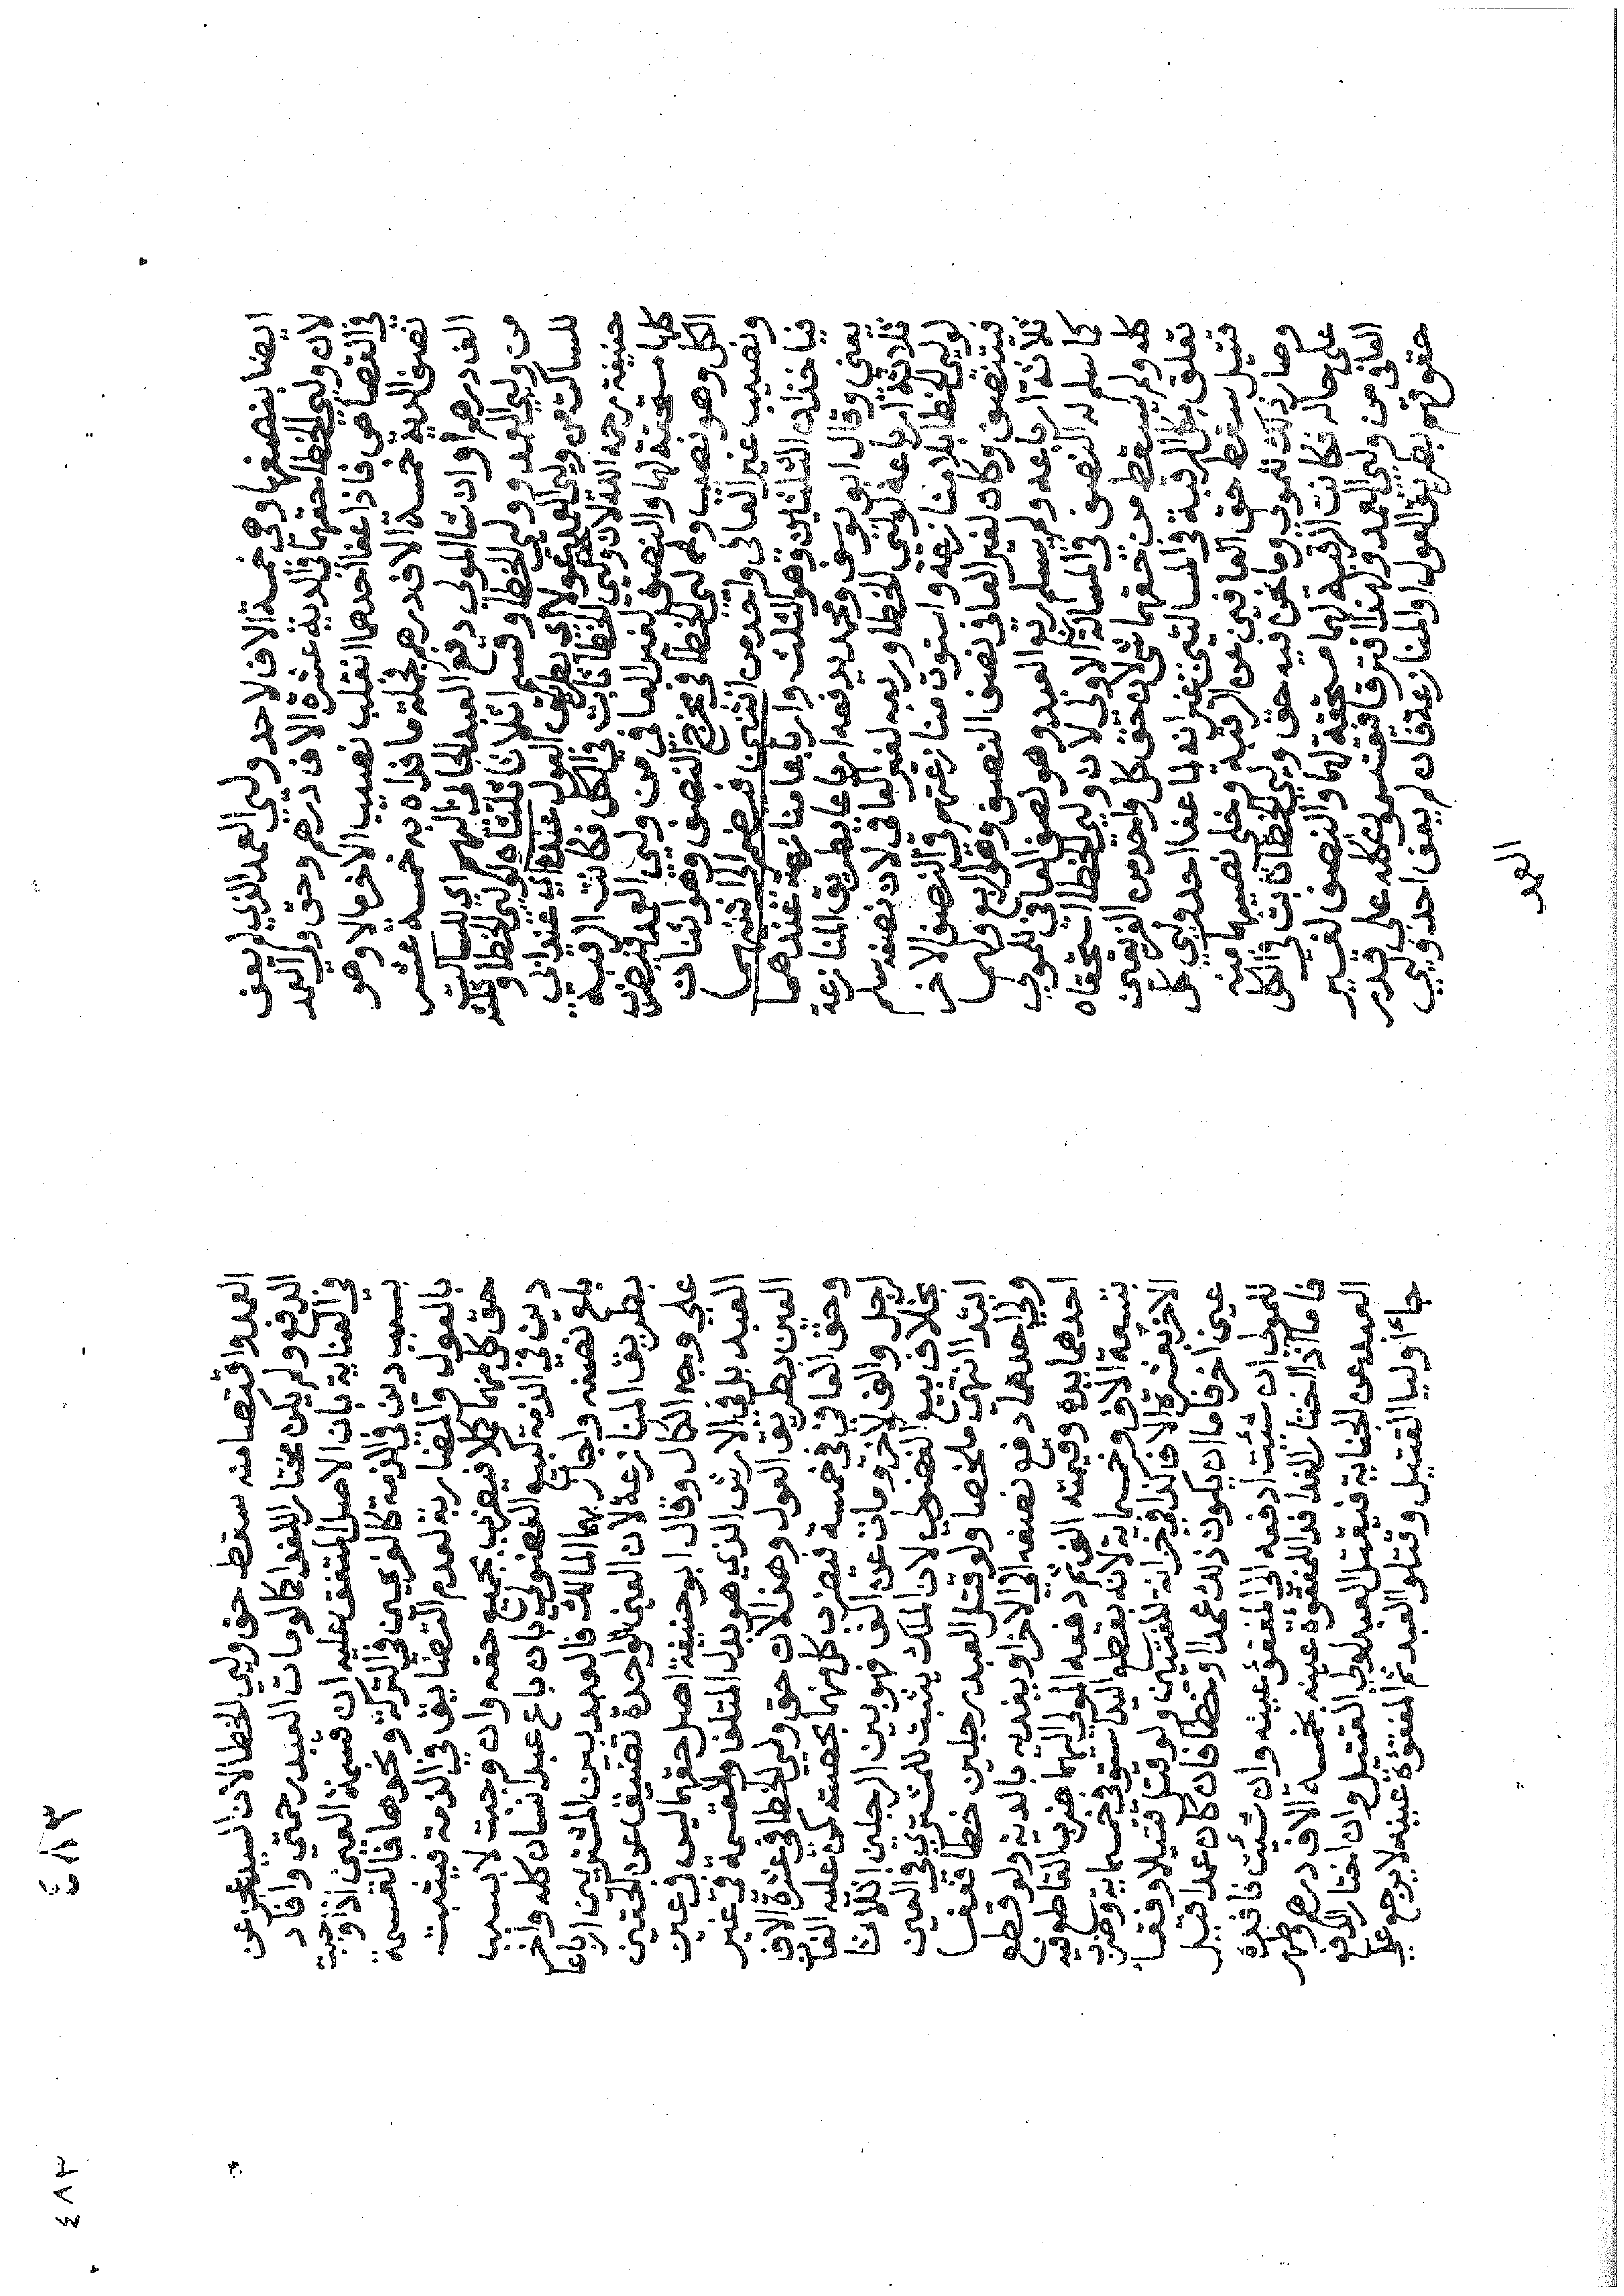 ايضا بنصفها وهي خمسة الاف لاحد وليي العمد الذي لم يعف
لان ولي الخطا حقهما في الدية عشرة الاف درهم وحق وليي العمد
في القصاص فاذا عفا احدهما انقلب نصيب الاخر مالا وهو
نصف الدية خمسة الاف درهم فجملة ما فداه به خمسة عشر
الف درهم او ان شا المولى دفع العبد الجاني اليهم اي للساكت
من وليي العمد وولي الخطا وقسم اثلاثا ثلثاه لوليي الخطا وثلثه
للساكت من وليي العمد عولا اي بطريق العول عنده اي عند ابي
حنيفة رحمه الله لان وليي الخطا ثابت في الكل فكانت الرقبة
كلها مستحقة لهما والنصف لغير العافي من وليي العمد فيضرب
الكل وهو نصيب ولي الخطا في مخرج النصف وهو اثنان
ونصيب غير العافي واحد من اثنين فيضم الى اثنيهما
فياخذان الثلثين وهو الثلث وارباعا منازعة عندهما
يعني وقال ابو يوسف ومحمد يدفعه ارباعا بطريق المنازعة
ثلاثة ارباعه لوليي الخطا وربعه لغير العافي لان نصفه سلم
لوليي الخطا بلا منازعة واستوت منازعتهم في النصف الاخر
فيتنصف وكان لغير العافي نصف النصف وهو الربع ولهما
ثلاثة ارباعه ولم يسلم ربع العبد وهو نصف العافي للمولى
كما سلم له النصف في المسالة الاولى لان وليي الخطا استحقاه
كله ولم يسقط من حقهما شي لان حق كل واحد من الفريقين
تعلق بكل الرقبة في المسالتين غير انه لما عفا احد وليي كل
قتيل سقط حق العافيين عن الرقبة وخلى نصيبهما منه
وصار ذلك للمولى وما نحن فيه حق وليي الخطا ثابت في الكل
على حاله فكانت الرقبة لهما مستحقة لهما والنصف لغير
العافي من وليي العمد ولهذا افترقا فيقتسمون كله على قدر
حقوقهم بطريق العول او المنازعة فان لم يعف احد وليي
العمد
العمد واقتصا منه سقط حق وليي الخطا لان السيد عجز عن
الدفع ولم يكن مختارا للفدا كما لو مات العبد رحمتي وافاد
في العناية بان الاصل المتفق عليه ان قسمة العين اذا وجبت
بسبب دين في الذمة كالغريمين في التركة ونحوها فالقسمة
بالعول والمضاربة لعدم التضايق في الذمة فيثبت
حق كل منهما كملا فيضرب بجميع حقه وان وجبت لا بسبب
دين في الذمة كبيع الفضولي بان باع عبد انسان كله واخر
باع نصفه واجازهما المالك فالعبد بين المشتريين ارباعا
بطريق المنازعة لان العين الواحدة تضيق عن الحقين
على وجه الكمال وقال ابو حنيفة اصل حقهما ليس في عين
العبد بل في الارش الذي هو بدل المتلف والقسمة في غير
العين بطريق العول وهذا لان حق وليي الخطا في عشرة الاف
وحق العافي في خمسة فيضرب كل منهما بحصته كمن عليه الفان
لرجل والف لاخر ومات عن الف فهو بين الرجلين اثلاثا
بخلاف بيع الفضولي لان الملك يثبت للمشتري في العين
ابتدا انتهى ملخصا ولو قتل العبد رجلين خطا فعفا
ولي احدهما دفع نصفه الى الاخر او يفديه بالدية ولو قطع
احدهما يده وقيمته الف ثم دفعه المولى اليهما ضرب القاطع فيه
بتسعة الاف وخمسماية لانه بقطع اليد استوفى خمسماية وضرب
الاخر بعشرة الاف كذا في خزانة المفتيين ولو قتل قتيلا وفقا
عين اخر فاما ان يكون ذلك عمدا او خطا فان كان عمدا قيل
للمولى ان شئت ادفعه الى المفقؤ عينه وان شئت فافده
فاما اذا اختار الفدا فدا المفقوة عينه بخمسة الاف درهم وطهر
العبد عن الجناية فيقتل العبد لولي القتيل وان اختار الدفع
جا اوليا القتيل وقتلوا العبد ثم المفقؤة عينه لا يرجع على
٤٨٣
٤٨٣